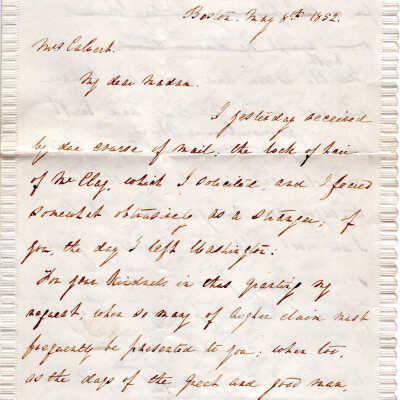 Boston. May 8th 1852.
Mrs Calvert.
My dear Madam.
I yesterday received
by due course of mail; the lock of hair
of Mr Clay, which I solicited, and I feared
somewhat obtrusively as a stranger; of
you, the day I left Washington.
For your kindness in thus granting my
request, when so many of higher claim must
frequently be presented to you; when too,
as the days of the great and good man,